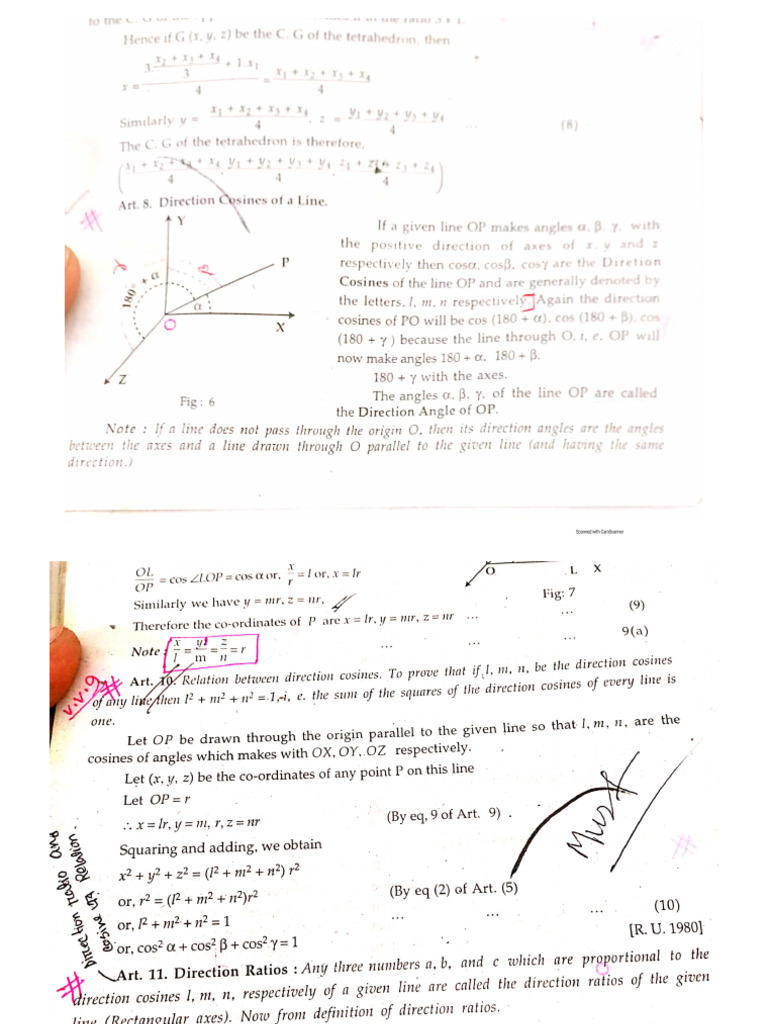 to the C. G of the
Hence if G (x, y, z) be the C. G of the tetrahedron, then
x = (3 (x₂ + x₃ + x₄)/3 + 1.x₁)/4 = (x₁ + x₂ + x₃ + x₄)/4
Similarly y = (x₁ + x₂ + x₃ + x₄)/4, z = (y₁ + y₂ + y₃ + y₄)/4 ... (8)
The C. G of the tetrahedron is therefore,
((x₁ + x₂ + x₃ + x₄)/4 (y₁ + y₂ + y₃ + y₄)/4 (z₁ + z₂ + z₃ + z₄)/4)
# Art. 8. Direction Cosines of a Line.
Y
P
γ
β
180° + α
α
O
X
Z
Fig : 6
If a given line OP makes angles α, β, γ, with
the positive direction of axes of x, y and z
respectively then cosα, cosβ, cosγ are the Diretion
Cosines of the line OP and are generally denoted by
the letters, l, m, n respectively. Again the direction
cosines of PO will be cos (180 + α), cos (180 + β), cos
(180 + γ ) because the line through O, i, e. OP will
now make angles 180 + α, 180 + β.
180 + γ with the axes.
The angles α, β, γ, of the line OP are called
the Direction Angle of OP.
Note : If a line does not pass through the origin O, then its direction angles are the angles
between the axes and a line drawn through O parallel to the given line (and having the same
direction.)
Scanned with CamScanner
OL/OP = cos ∠LOP = cos α or, x/r = l or, x = lr
O L X
Fig: 7
Similarly we have y = mr, z = nr,
Therefore the co-ordinates of P are x = lr, y = mr, z = nr ... ... (9)
Note : x/l = y/m = z/n = r ... ... ... 9(a)
v.v.9 # Art. 10. Relation between direction cosines. To prove that if l, m, n, be the direction cosines
of any line then l² + m² + n² = 1, i, e. the sum of the squares of the direction cosines of every line is
one.
Let OP be drawn through the origin parallel to the given line so that l, m, n, are the
cosines of angles which makes with OX, OY, OZ respectively.
Let (x, y, z) be the co-ordinates of any point P on this line
Let OP = r
∴ x = lr, y = m, r, z = nr (By eq, 9 of Art. 9) .
Must
#
Squaring and adding, we obtain
x² + y² + z² = (l² + m² + n²) r²
or, r² = (l² + m² + n²)r² (By eq (2) of Art. (5)
or, l² + m² + n² = 1 ... ... ... (10)
or, cos² α + cos² β + cos² γ = 1 [R. U. 1980]
Direction ratio and
cosine का Relation.
# Art. 11. Direction Ratios : Any three numbers a, b, and c which are proportional to the
direction cosines l, m, n, respectively of a given line are called the direction ratios of the given
line (Rectangular axes). Now from definition of direction ratios.